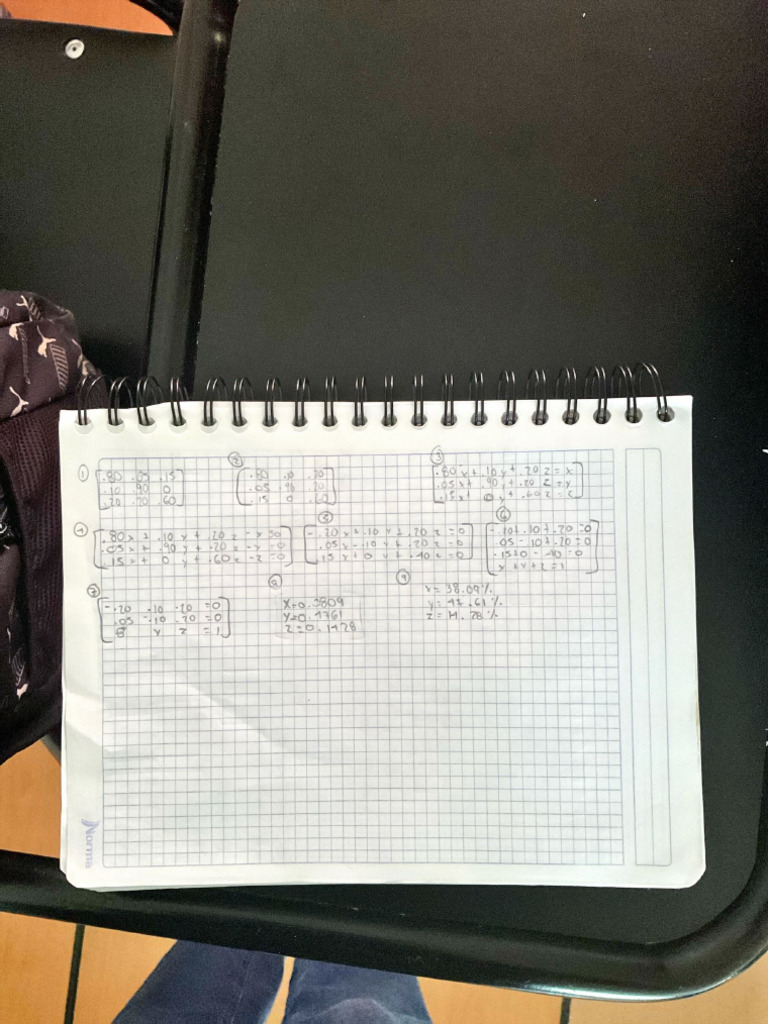 ①
.80 .05 .15
.10 .90 0
.20 .20 .60
②
.80 .10 .20
.05 .90 .20
.15 0 .60
③
.80x + .10y + .20z = x
.05x + .90y + .20z = y
.15x + 0y + .60z = z
④
.80x + .10y + .20z - x = 0
.05x + .90y + .20z - y = 0
.15x + 0y + .60z - z = 0
⑤
-.20x + .10y + .20z = 0
.05x - .10y + .20z = 0
.15x + 0y + -.40z = 0
⑥
.05 - .10 + .20 = 0
.15 + 0 - .40 = 0
x + y + z = 1
⑦
-.20 .10 .20 = 0
.05 -.10 .20 = 0
y z = 1
x = 0.3809
y = 0.4761
z = 0.1428
⑨
x = 38.09%
y = 47.61%
z = 14.28%
Norma